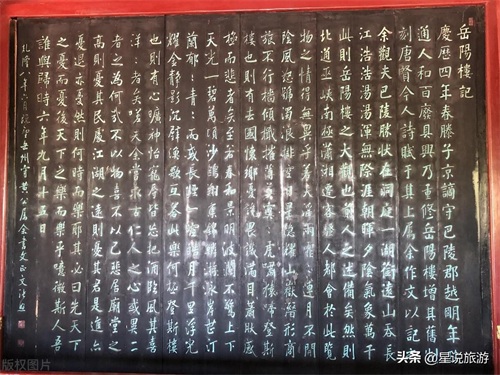 岳陽樓記
慶歷四年春滕子京謫守巴陵郡越明年政
通人和百廢具興乃重修岳陽樓增其舊制
刻唐賢今人詩賦于其上屬余作文以記之
余觀夫巴陵勝狀在洞庭一湖銜遠山吞長
江浩浩湯湯渾無涯朝暉夕陰氣象萬千
此則岳陽樓之大觀也前人之述備矣然則
北通巫峽南極瀟湘遷客騷人都會於此覽
物之情得無異乎若夫淫雨霏霏連月不開
陰風怒號濁浪排空日星隱耀山嶽潛形商
旅不行檣傾楫摧薄暮冥冥虎嘯猿啼登斯
樓也則有去國懷鄉憂讒畏譏滿目蕭然感
極而悲者矣至若春和景明波瀾不驚上下
天光一碧萬頃沙鷗翔集錦鱗游泳岸芷汀
蘭郁郁青青而或長煙一空皓月千里浮光
耀金靜影沉璧漁歌互答此樂何極登斯樓
也則有心曠神怡寵辱皆忘把酒臨風其喜
洋洋者矣嗟夫余嘗求古仁人之心或異二
者之為何哉不以物喜不以己悲居廟堂之
高則憂其民處江湖之遠則憂其君是進亦
憂退亦憂然則何時而樂耶其必曰先天下
之憂而憂後天下之樂而樂乎噫微斯人吾
誰與歸時六年九月十五日
乾隆八年
版权图片
头条 @星说旅游